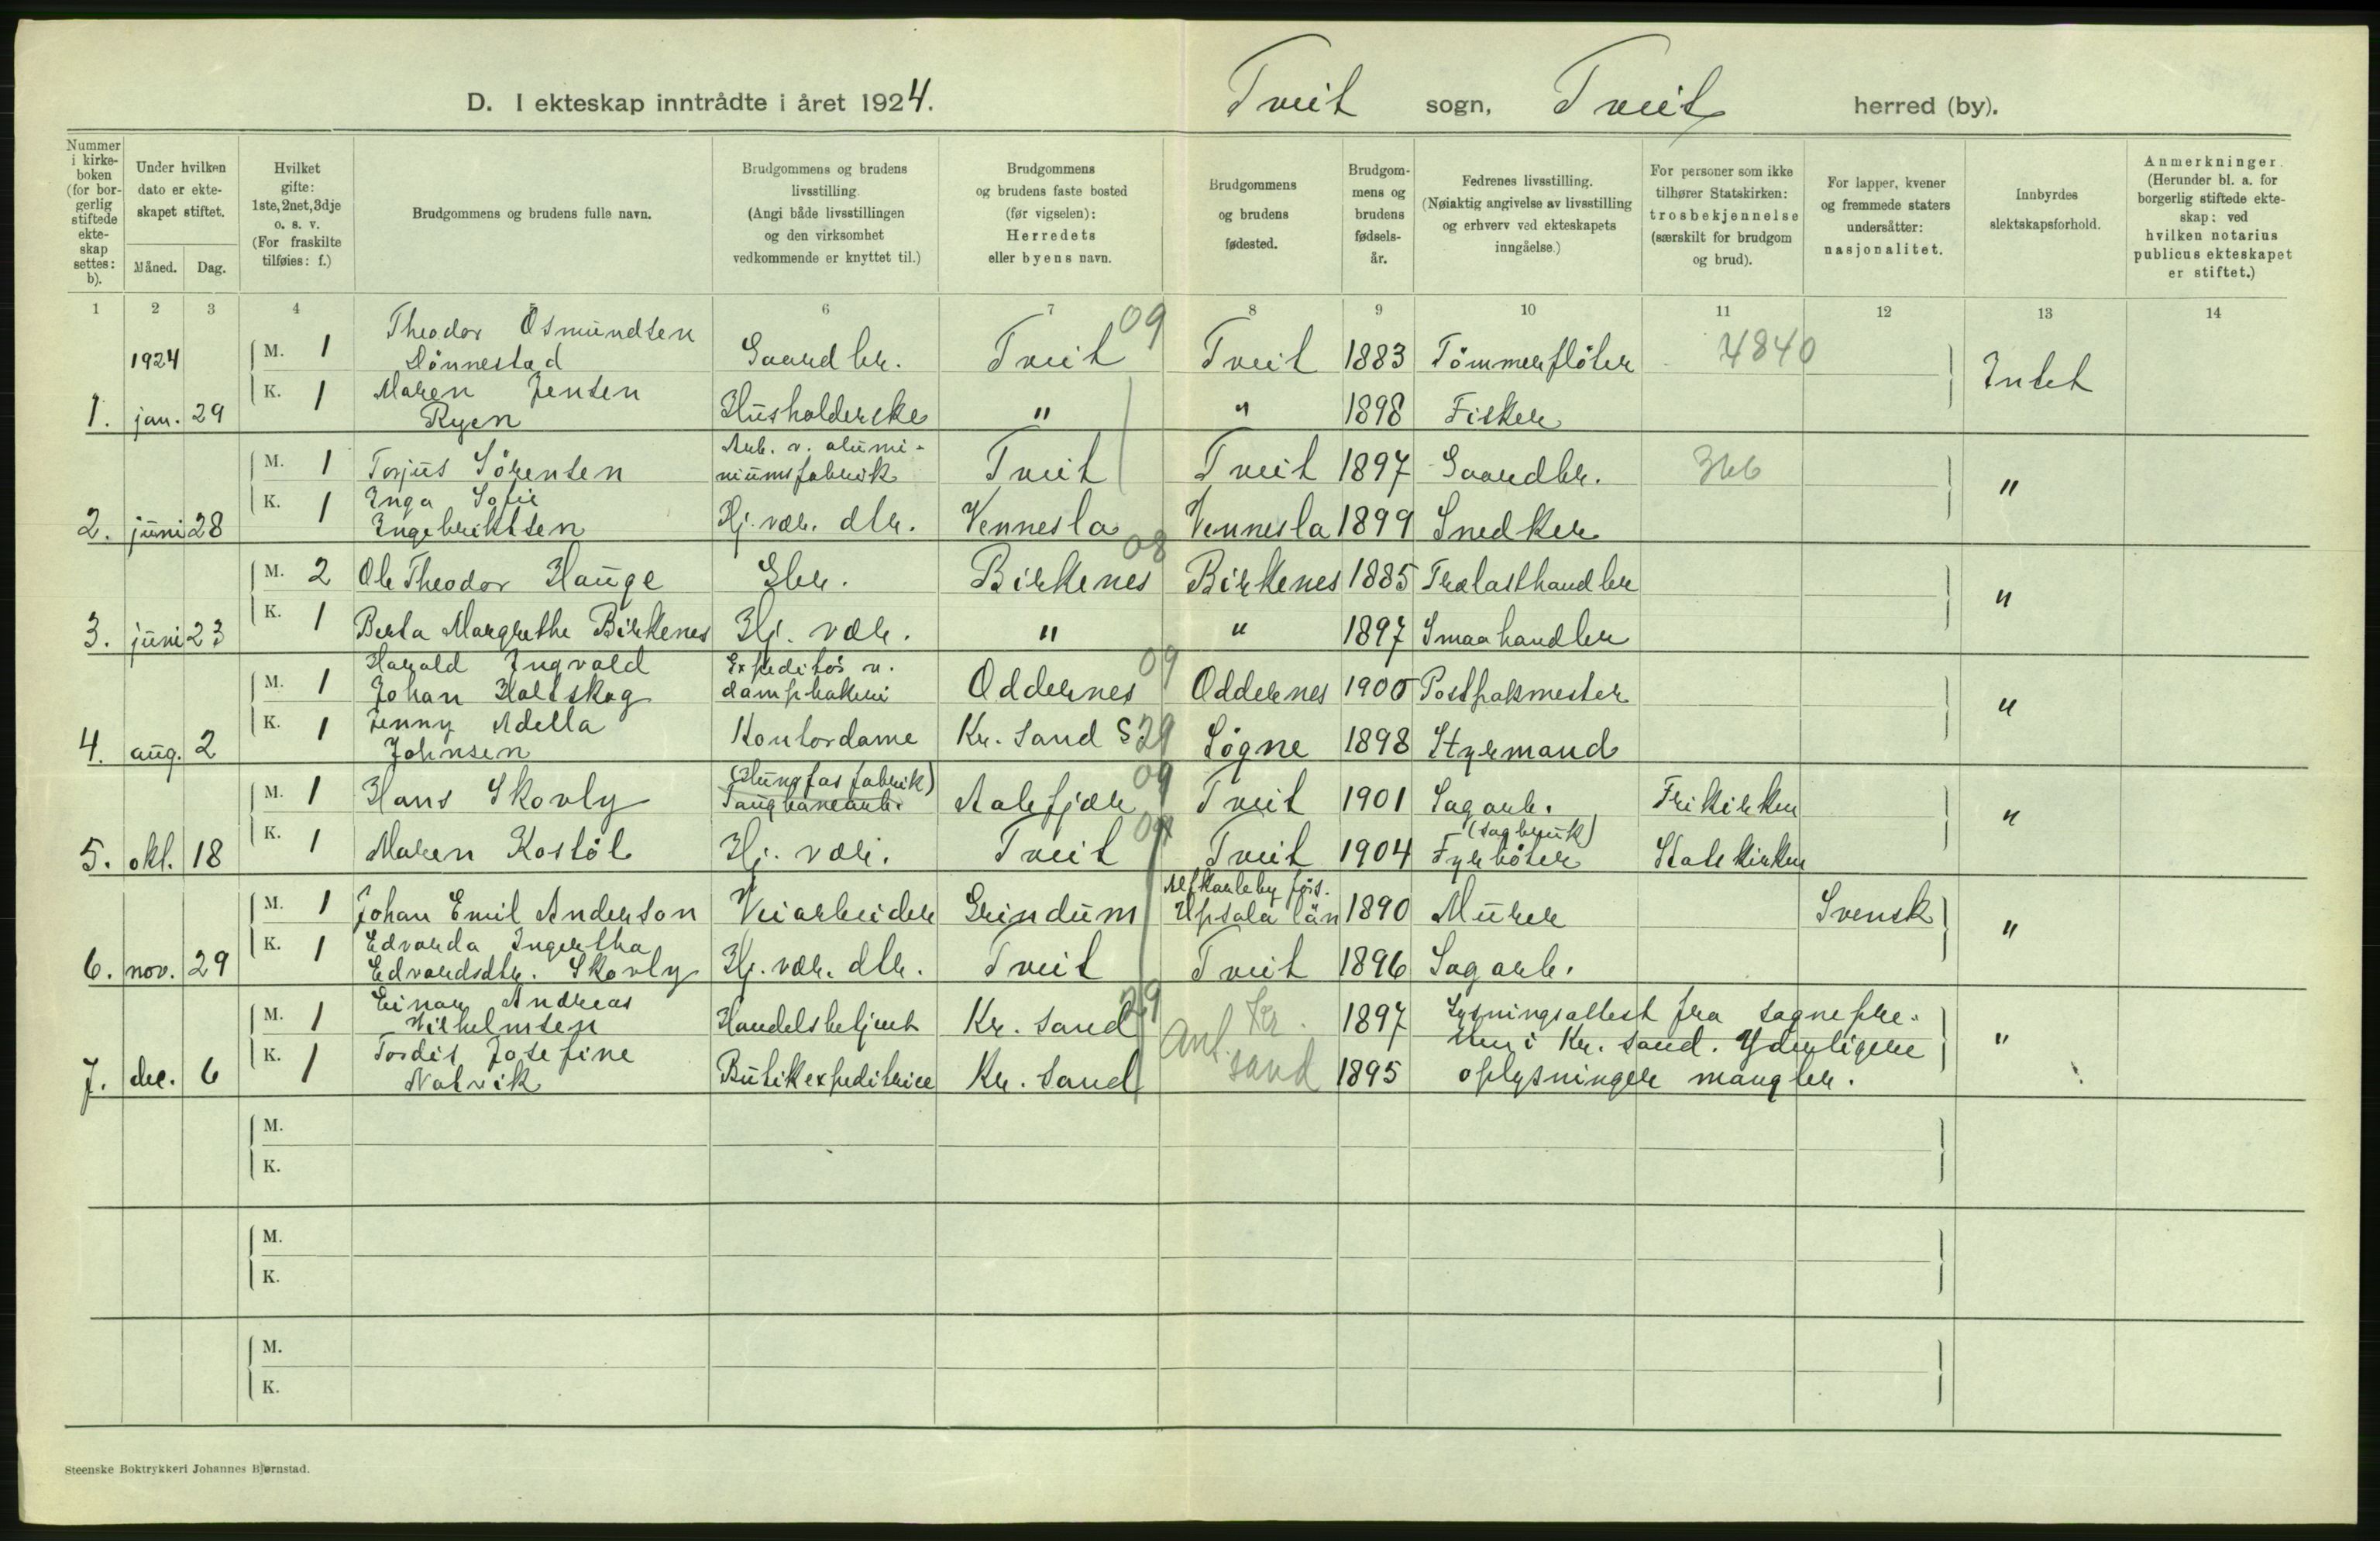 D. I ekteskap inntrådte i året 1924.
Tveit sogn, Tveit herred (by).
Nummer i kirkeboken (for borgerlig stiftede ekteskap settes: b).
Under hvilken dato er ekteskapet stiftet.
Måned. Dag.
Hvilket gifte: 1ste, 2net, 3dje o. s. v. (For fraskilte tilføies: f.)
Brudgommens og brudens fulle navn.
Brudgommens og brudens livsstilling. (Angi både livsstillingen og den virksomhet vedkommende er knyttet til.)
Brudgommens og brudens faste bosted (før vigselen): Herredets eller byens navn.
Brudgommens og brudens fødested.
Brudgommens og brudens fødselsår.
Fedrenes livsstilling. (Nøiaktig angivelse av livsstilling og erhverv ved ekteskapets inngåelse.)
For personer som ikke tilhører Statskirken: trosbekjennelse (særskilt for brudgom og brud).
For lapper, kvener og fremmede staters undersåtter: nasjonalitet.
Innbyrdes slektskapsforhold.
Anmerkninger. (Herunder bl. a. for borgerlig stiftede ekteskap: ved hvilken notarius publicus ekteskapet er stiftet.)
1 2 3 4 5 6 7 8 9 10 11 12 13 14
1924 M. 1 Theodor Osmundsen Dønnestad Gaardbr. Tveit 09 Tveit 1883 Tømmerfløter 4840 Intet
1. jan. 29 K. 1 Maren Jensen Ryen Husholderske " " 1898 Fisker
M. 1 Torjus Sørensen Arb. v. aluminiumsfabrik Tveit Tveit 1897 Gaardbr. 366 "
2. juni 28 K. 1 Inga Sofie Engebriktsen Hj. vær. dtr. Vennesla Vennesla 1899 Snedker
M. 2 Ole Theodor Hauge Gbr. Birkenes 08 Birkenes 1885 Trælasthandler "
3. juni 23 K. 1 Berta Margrethe Birkenes Hj. vær. " " 1897 Smaahandler
M. 1 Harald Ingvald Johan Holtskog Expeditør v. dampbakeri Oddernes 09 Oddernes 1900 Postpakmester "
4. aug. 2 K. 1 Jenny Adella Johnsen Kontordame Kr. sand S 29 Søgne 1898 Styrmand
M. 1 Hans Skovly (Hungfos fabrik) Taugbanearb. Aalefjær 09 Tveit 1901 Sagarb. Frikirken "
5. okt. 18 K. 1 Maren Kostøl Hj. vær. Tveit 09 Tveit 1904 (sagbruk) Fyrbøter Statskirken
M. 1 Johan Emil Anderson Veiarbeider Grindum Elfkarleby förs. Upsala län 1890 Murer Svensk "
6. nov. 29 K. 1 Edvarda Ingertha Edvardsdtr. Skovly Hj. vær. dtr. Tveit Tveit 1896 Sagarb.
M. 1 Einar Andreas Wilhelmsen Handelsbetjent Kr. sand 29 Ant. Kr. sand 1897 Lysningsattest fra sognepre- "
7. dec. 6 K. 1 Tordis Josefine Natvik Butikexpeditrice Kr. sand 1895 sten i Kr. sand. Yderligere oplysninger mangler.
M.
K.
M.
K.
M.
K.
Steenske Boktrykkeri Johannes Bjørnstad.